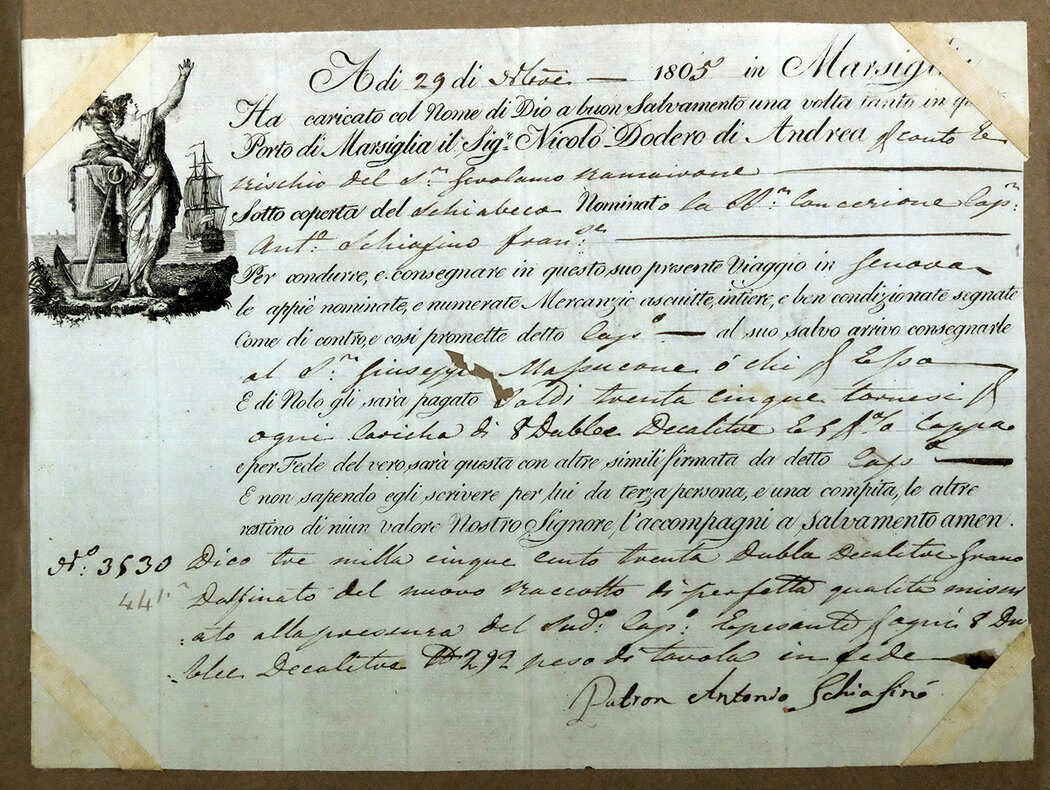 A di 29 di Nbre — 1805 in Marsiglia
Ha caricato col Nome di Dio a buon Salvamento una volta tanto in
Porto di Marsiglia il Sigr. Nicolò Dodero di Andrea conto e
rischio del Sr. Girolamo Ramairone
Sotto coperta del Schiabeco Nominato la SS.ma Concezione Capn:
Anto. Schiafino franse
Per condurre, e consegnare in questo suo presente Viaggio in Genova
le appiè nominate, e numerate Mercanzie asciutte, intiere, e ben condizionate segnate
Come di contro, e così promette detto Capo — al suo salvo arrivo consegnarle
al Sr. Giuseppe ò chi
E di Nolo gli sarà pagato Soldi trenta cinque tornesi
ogni Caricha di 8 Dublee Decalitre Cappa
e per Fede del vero, sarà questa con altre simili firmata da detto Capo
E non sapendo egli scrivere per lui da terza persona, e una compita, le altre
restino di niun valore Nostro Signore l'accompagni a salvamento amen.
No: 3530 Dico tre milla cinque cento trenta Dubla Decalitre Grano
441 Dalfinato del nuovo raccolto di perfetta qualita misur
ato alla presenza del Sudo: Capo: Epesante ogni 8 Du
blee Decalitre 292 peso di tavola in fede
Patron Antonio Schiafino